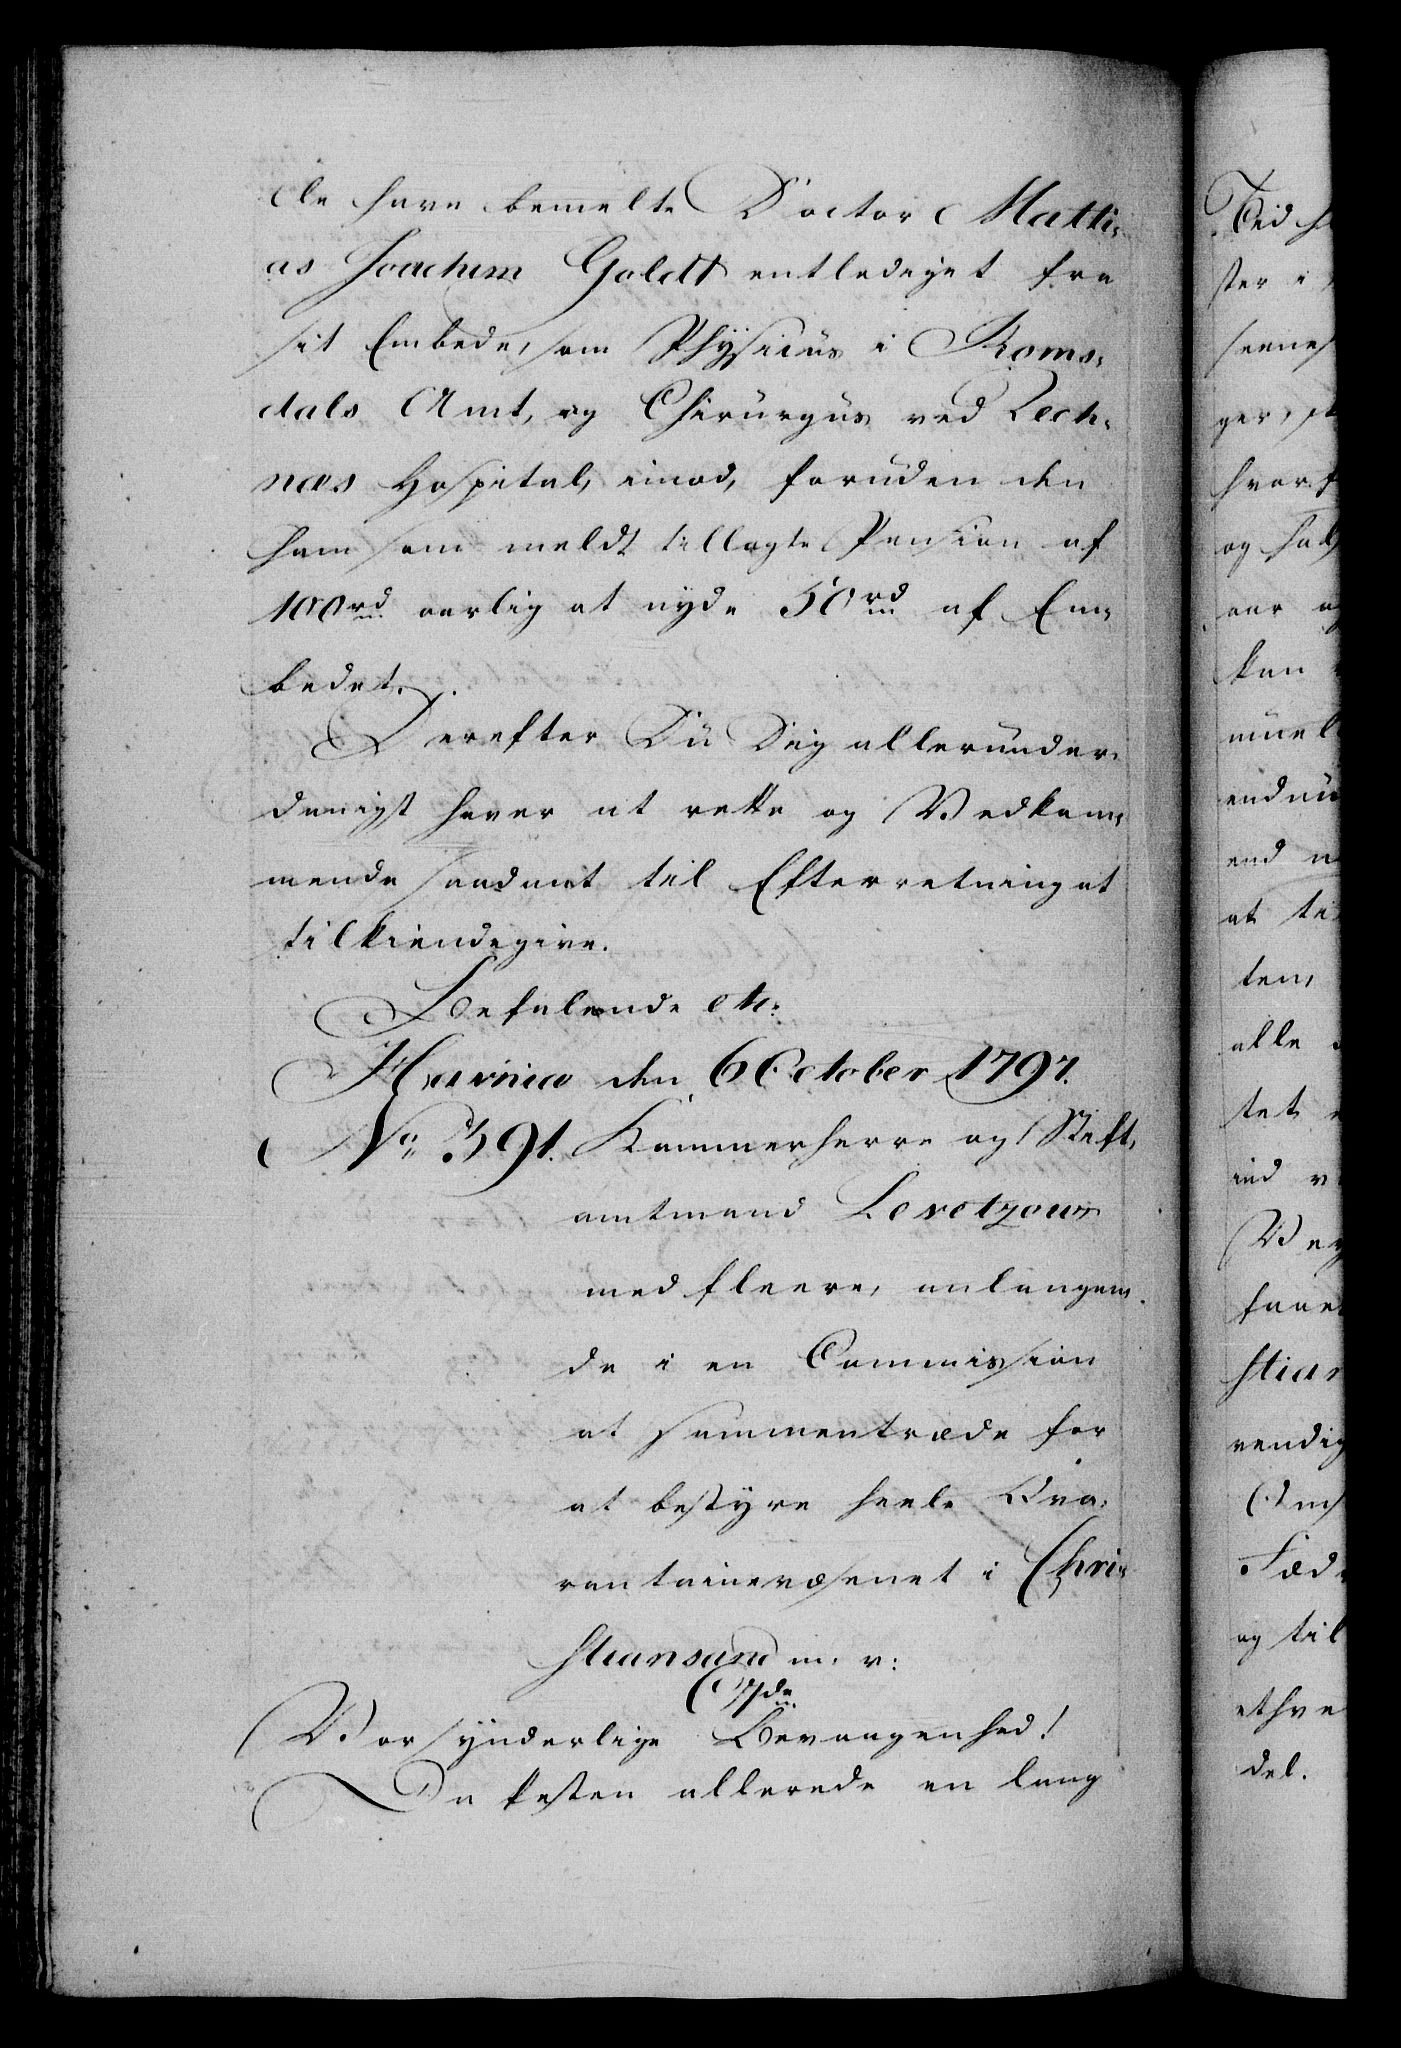 le have bemelte Doctor Matthi-
as Joachim Goldt entlediget fra
sit Embede, som Physicus i Roms-
dals Amt, og Chirurgus ved Rech-
næs Hospital, imod, foruden den
ham som meldt tillagte Pension af
100 rd aarlig at nyde 50 rd af Em-
bedet.
Derefter Du Dig allerunder-
danigst haver at rette og Vedkom-
mende saadant til Efterretning at
tilkiendegive.
Befalende etc:
Havnia den 6 October 1797.
No 391. Kammerherre og Stift-
amtmand Levetzow
med fleere, anlangen-
de i en Commission
at sammentræde for
at bestyre heele Qva-
rantainevæsenet i Chri-
stiansand m. v:
C 7de
Vor synderlige Bevaagenhed!
Da Pesten allerede en lang
Tid
ster i
ger,
og
aar
kan
end
at
ten,
alle
tet
ind
stian
vendig
og til
del.